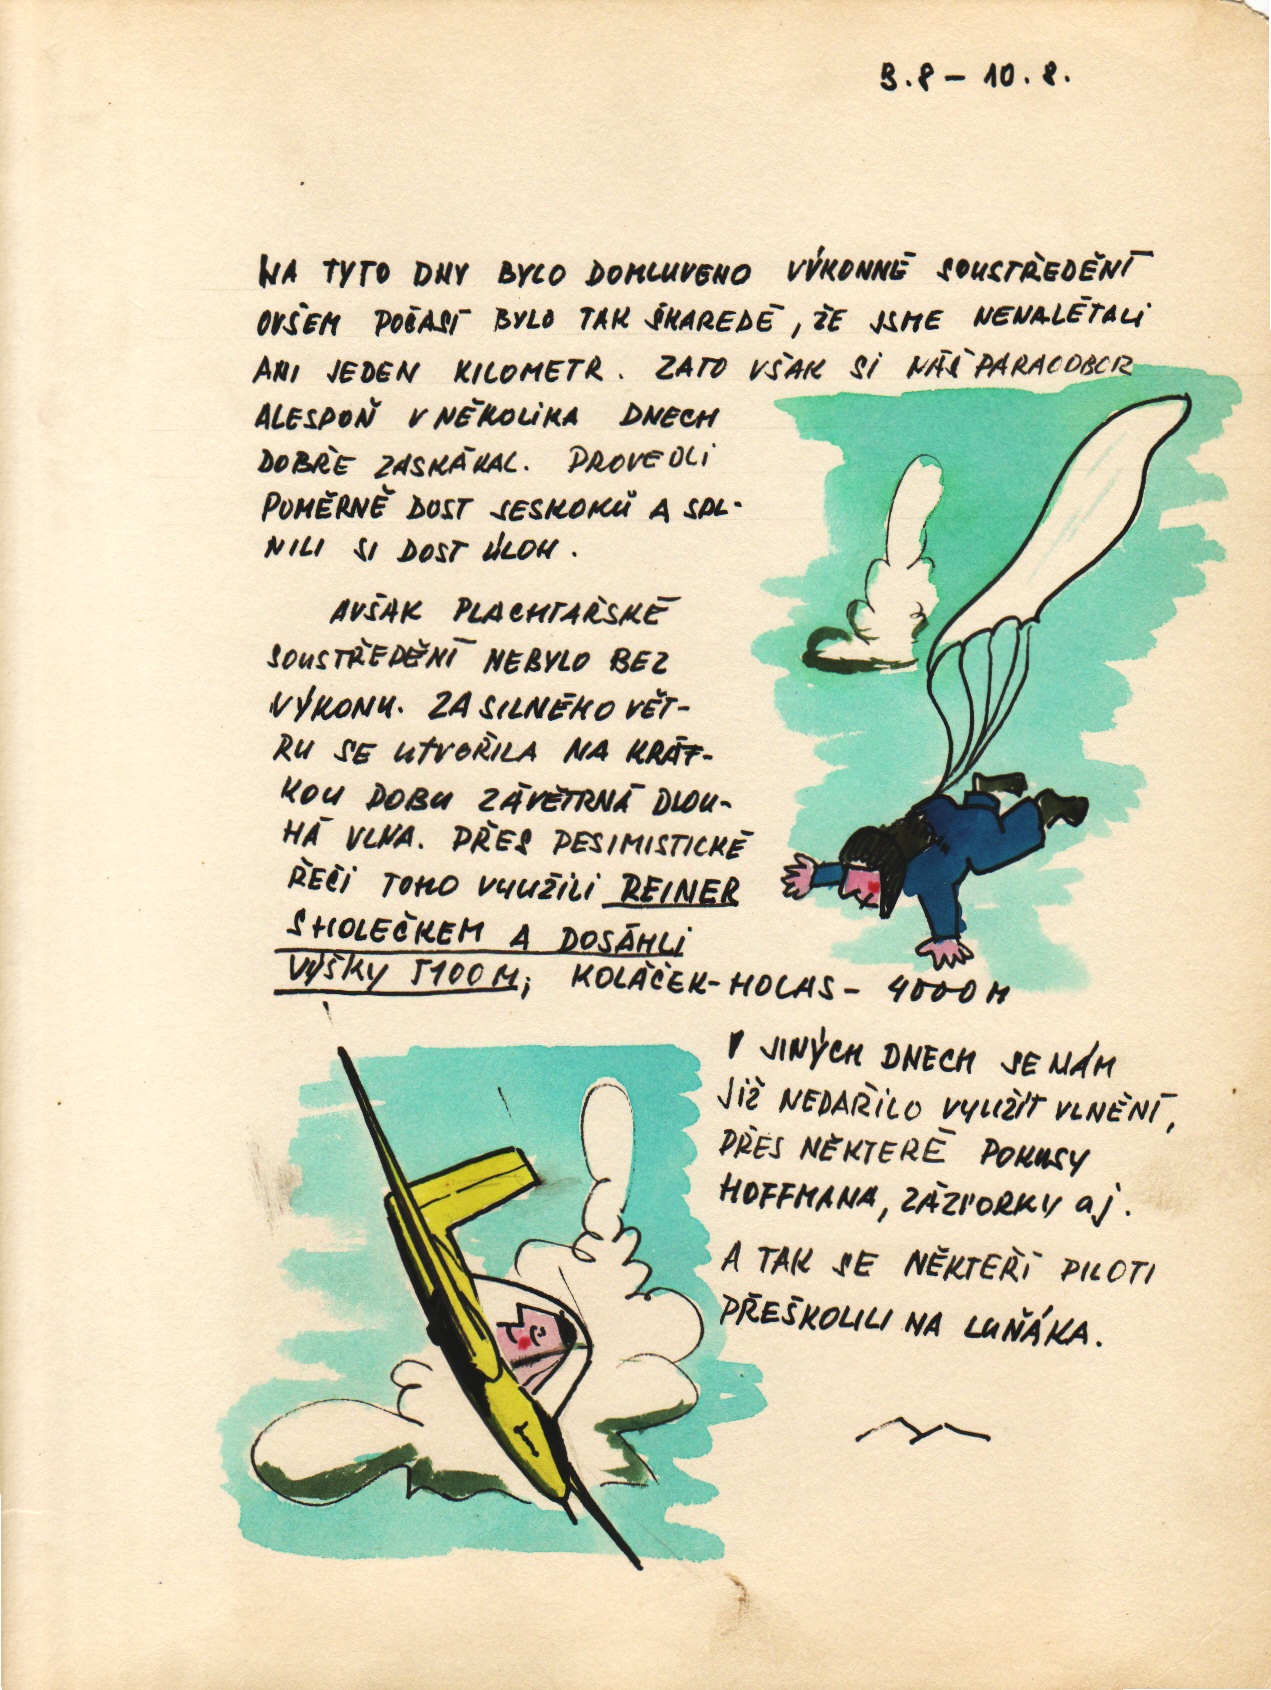 3.8 – 10.8.
NA TYTO DNY BYLO DOMLUVENO VÝKONNÉ SOUSTŘEDĚNÍ
OVŠEM POČASÍ BYLO TAK ŠKAREDÉ, ŽE JSME NENALÉTALI
ANI JEDEN KILOMETR. ZATO VŠAK SI NÁŠ PARAODBOR
ALESPOŇ V NĚKOLIKA DNECH
DOBŘE ZASKÁKAL. PROVEDLI
POMĚRNĚ DOST SESKOKŮ A SPL-
NILI SI DOST ÚLOH.
AVŠAK PLACHTAŘSKÉ
SOUSTŘEDĚNÍ NEBYLO BEZ
VÝKONU. ZA SILNÉHO VĚT-
RU SE UTVOŘILA NA KRÁT-
KOU DOBU ZÁVĚTRNÁ DLOU-
HÁ VLNA. PŘES PESIMISTICKÉ
ŘEČI TOHO VYUŽILI REINER
SHOLEČKEM A DOSÁHLI
VÝŠKY 5100 M; KOLÁČEK-HOLAS – 4000 M
V JINÝCH DNECH SE NÁM
JIŽ NEDAŘILO VYUŽÍT VLNĚNÍ,
PŘES NĚKTERÉ POKUSY
HOFFMANA, ZÁZVORKY aj.
A TAK SE NĚKTEŘÍ PILOTI
PŘEŠKOLILI NA LUŇÁKA.